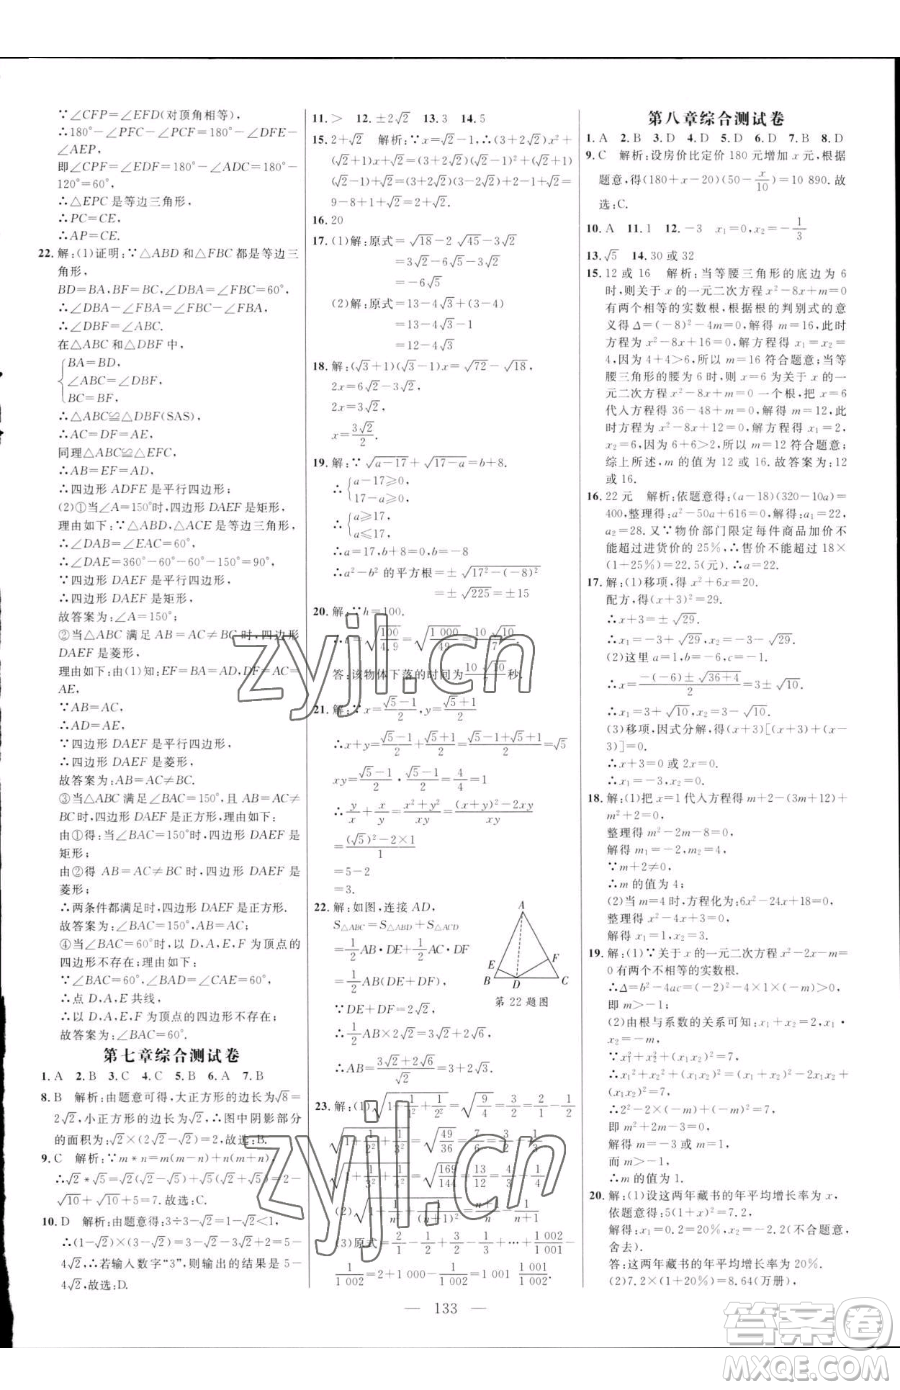 ∵∠CFP=∠EFD(对顶角相等),
∴180°-∠PCF-∠CFP=180°-∠DFE-
∠AEP,
即∠CPF=∠FDE=180°-∠ADE=180°-
120°=60°,
∴△EPC是等边三角形,
∴PC=CE,
∴AP=CE.
22. 解:(1)证明:∵△ABD和△FBC都是等边三
角形,
BD=BA,BF=BC,∠DBA=∠FBC=60°,
∴∠DBA-∠FBA=∠FBC-∠FBA,
∴∠DBF=∠ABC.
在△ABC和△DBF中,
{BA=BD,
∠ABC=∠DBF,
BC=BF,
∴△ABC≌△DBF(SAS),
∴AC=DF=AE,
同理△ABC≌△EFC,
∴AB=EF=AD,
∴四边形ADFE是平行四边形;
(2)①当∠A=150°时,四边形DAEF是矩形,
理由如下:∵△ABD,△ACE是等边三角形,
∴∠DAB=∠EAC=60°,
∴∠DAE=360°-60°-60°-150°=90°,
∵四边形DAEF是平行四边形,
∴四边形DAEF是矩形,
故答案为:∠A=150°;
②当△ABC满足AB=AC≠BC时,四边形
DAEF是菱形,
理由如下:由(1)知:EF=BA=AD,DF=AC=
AE,
∵AB=AC,
∴AD=AE,
∵四边形DAEF是平行四边形,
∴四边形DAEF是菱形.
故答案为:AB=AC≠BC;
③当△ABC满足∠BAC=150°,且AB=AC≠
BC时,四边形DAEF是正方形,
由①得:当∠BAC=150°时,四边形DAEF是
矩形;
由②得:当AB=AC≠BC时,四边形DAEF是
菱形;
∴两条件都满足时,四边形DAEF是正方形.
故答案为:∠BAC=150°,AB=AC≠BC;
④当∠BAC=60°时,以D,A,E,F为顶点的
四边形不存在;理由如下:
∵∠BAC=60°,∠BAD=∠EAC=60°,
∴∠DAE=60°+60°+60°=180°,
∴点D,A,E共线,
∴以D,A,E,F为顶点的四边形不存在;
故答案为:∠BAC=60°.
第七章综合测试卷
1. A 2. B 3. C 4. C 5. B 6. A 7. B
8. B 解析:由题意可得,大正方形的边长为√8=
2√2,小正方形的边长为√2,∴图中阴影部分
的面积为:√2×(2√2-√2)=2,故选:B.
9. C 解析:∵m*n=m(m-n)+n(m+n),
∴√2*√5=√2(√2-√5)+√5(√2+√5)=2-
√10+√10+5=7.故选:C.
10. D 解析:由题意得:3÷3-√2=1-√2<1,
∴(1-√2)×(3-√2)=3-√2-3√2+2=5-
4√2,∴若输入数字“3”,则输出的结果是5-
4√2,故选:D.
11. > 12. ±2√2 13. 3 14. 5
15. 2+√2 解析:∵x=√2-1,∴(3+2√2)x²+
(√2+1)x-1=(3+2√2)(√2-1)²+
(√2+1)(√2-1)-1=(3+2√2)(3-2√2)+
(√2-1)(√2+1)-1=
9-8+1+√2=2+√2
16. 20
17. (1)解:原式=√18-2√45-3√2
=3√2-6√5-3√2
=-6√5
(2)解:原式=13-4√3+(3-4)
=13-4√3-1
=12-4√3
18. 解:(√3+1)(√3-1)x=√72-√18,
2x=6√2-3√2,
2x=3√2,
x=3√2/2.
19. 解:∵√(a-17)+√(17-a)=b+8.
∴{a-17≥0
17-a≥0,
∴{a≥17,
a≤17,
∴a=17,b+8=0,∴b=-8
∴a²-b²的平方根=±√(17²-(-8)²)
=±√225=±15
20. 解:∵h=100.
∴t=√(100/4.9)=√(1 000/49)=10√10/7;
答:该物体下落的时间为10√10/7秒.
21. 解:∵x=(√5-1)/2,y=(√5+1)/2
∴x+y=(√5-1)/2+(√5+1)/2=(√5-1+√5+1)/2=√5
xy=(√5-1)/2·(√5+1)/2=4/4=1
∴y/x+x/y=(x²+y²)/xy=((x+y)²-2xy)/xy
=((√5)²-2×1)/1
=5-2
=3.
22. 解:如图,连接AD,
S△ABC=S△ABD+S△ACD
=1/2AB·DE+1/2AC·DF
=1/2AB(DE+DF),
∵DE+DF=2√2,
∴1/2AB×2√2=3√2+2√3,
∴AB=(3√2+2√3)/√2=3+√6.
A
E
F
B D C
第22题图
23. 解:(1)√(1+1/1²+1/2²)=√(9/4)=3/2=1/2+2/1
√(1+1/2²+1/3²)=√(49/36)=7/6=2/3+1/2
√(1+1/3²+1/4²)=√(169/144)=13/12=3/4+1/3
(3)原式=2/1+1/2-1+…+1 002/1 001+
1/1 002=2+1 000+1/1 002=1 001 1/1 002
第八章综合测试卷
1. A 2. B 3. D 4. D 5. D 6. D 7. B 8. D
9. C 解析:设房价比定价180元增加x元,根据
题意,得(180+x-20)(50-x/10)=10 890.故
选:C.
10. A 11. 1 12. -3 x₁=0,x₂=-1/3
13. √5 14. 30或32
15. 12或16 解析:当等腰三角形的底边为6
时,则关于x的一元二次方程x²-8x+m=0
有两个相等的实数根,根据根的判别式的意
义得Δ=(-8)²-4m=0,解得m=16,
解方程x²-8x+16=0,解方程得x₁=x₂=
4,因为4+4>6,所以m=16符合题意;当等
腰三角形的腰为6时,则x=6为关于x的一
元二次方程x²-8x+m=0一个根,把x=6
代入方程得36-48+m=0,解得m=12,解
方程x²-8x+12=0,解方程得x₁=2,
x₂=6,因为2+6>6,所以m=12符合题意;
综上所述,m的值为12或16.故答案为:12
或16.
16. 22元 解析:依题意得:(a-18)(320-10a)=
400,整理得:a²-50a+616=0,解得:a₁=22,
a₂=28.又∵物价部门限定每件商品加价不
能超过进货价的25%,∴售价不能超过18×
(1+25%)=22.5(元).∴a=22.
17. 解:(1)移项,得x²+6x=20.
配方,得(x+3)²=29.
∴x+3=±√29,
∴x₁=-3+√29,x₂=-3-√29.
(2)这里a=1,b=-6,c=-1,
∴x=(-(-6)±√(36+4))/2=3±√10,
∴x₁=3+√10,x₂=3-√10.
(3)移项,因式分解,得(x+3)[(x+3)-
3)]=0,
∴x+3=0或x=0,
∴x₁=-3,x₂=0.
18. 解:(1)把x=1代入方程得m+2-(3m+12)+
m²+2m=0,
整理得m²-2m-8=0,
解得m₁=-2,m₂=4,
∵m+2≠0,
∴m的值为4;
(2)当m=4时,方程化为:6x²-24x+18=0,
整理得x²-4x+3=0,
解得x₁=1,x₂=3.
19. 解:(1)∵关于x的一元二次方程x²-2x-m=
0有两个不相等的实数根.
∴Δ=b²-4ac>0,即2²-4×1×(-m)>0,
即m>-1;
(2)由根与系数的关系可知:x₁+x₂=2,
∴x₁²+x₂²+2x₁x₂-x₁x₂
∴2²-2-m²-m=0,
即m²+m-2=0,
解得m=-3或m=1,
而m>-1,
∴m的值为1.
20. 解:(1)设这两年藏书的年平均增长率为x,
依题意得:5(1+x)²=7.2,
解得:x₁=0.2=20%,x₂=-2.2(不合题意,
舍去).
答:这两年藏书的年平均增长率为20%.
(2)7.2×(1+20%)=8.64(万册),
— 133 —
zyjl.cn
zyjl.cn
答案圈
MXQE.COM